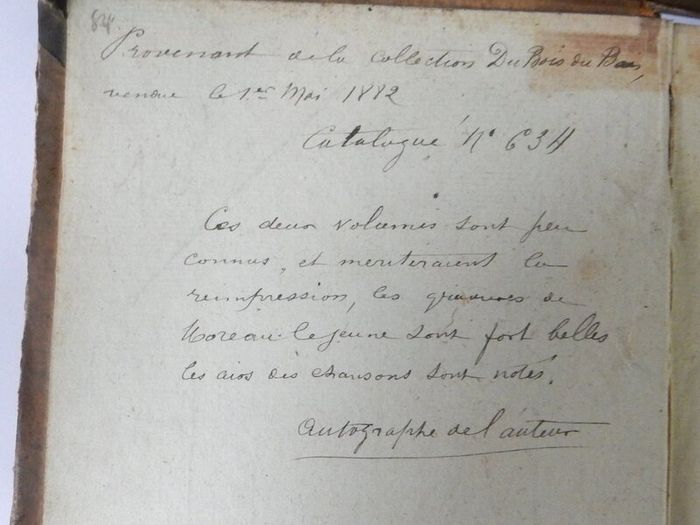 824
Provenant de la Collection Du Bois du Bais,
vendue le 1er Mai 1882
Catalogue N° 634
Ces deux volumes sont peu
connus, et meriteraient la
reimpression, les gravures de
Moreau le jeune sont fort belles
les airs des chansons sont notés.
Autographe de l'auteur